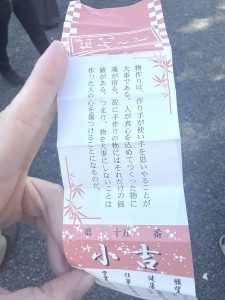 物作りは、作り手が使い手を思いやることが
大事である。人が真心を込めてつくった物に
魂が宿る。故に手作りの物にはそれだけの価
値がある。つまり、物を大事にしないことは
作った人の心を傷つけることになるのだ。
第 十五 番
小吉
願望
健康
仕事